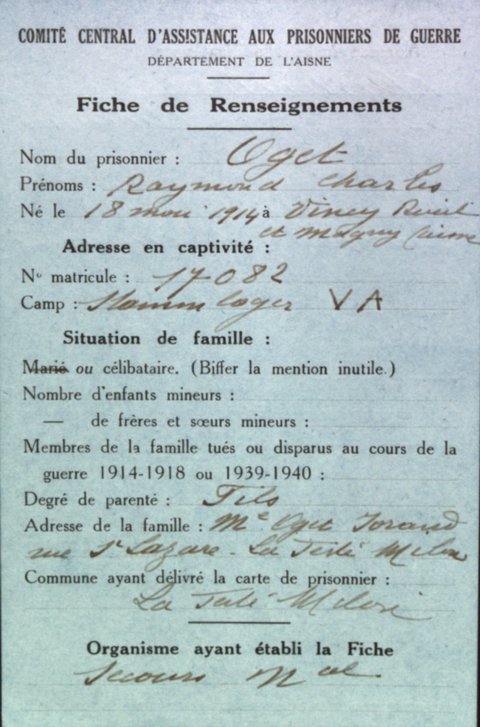 COMITÉ CENTRAL D'ASSISTANCE AUX PRISONNIERS DE GUERRE
DÉPARTEMENT DE L'AISNE
Fiche de Renseignements
Nom du prisonnier : Oget
Prénoms : Raymond Charles
Né le 18 mai 1914 à Viney Reuil
et Magny Aisne
Adresse en captivité :
N° matricule : 17082
Camp : Stammlager V A
Situation de famille :
Marié ou célibataire. (Biffer la mention inutile.)
Nombre d'enfants mineurs :
— de frères et sœurs mineurs :
Membres de la famille tués ou disparus au cours de la
guerre 1914-1918 ou 1939-1940 :
Degré de parenté : Fils
Adresse de la famille : Me Oget
rue St Lazare - La Ferté Milon
Commune ayant délivré la carte de prisonnier :
La Ferté Milon
Organisme ayant établi la Fiche
Secours Nal.